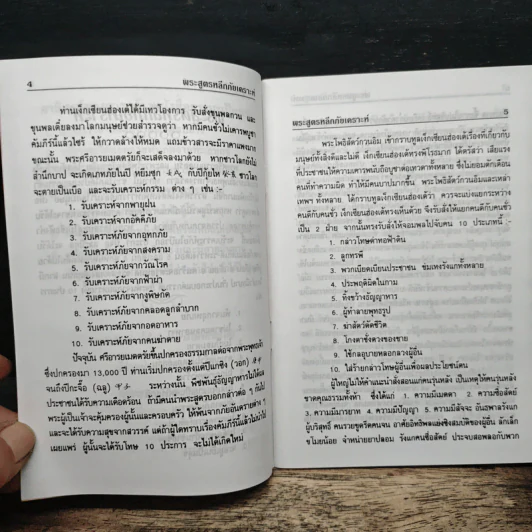 4
พระสูตรหลีกภัยเคราะห์
ท่านเง็กเซียนฮ่องเต้ได้มีเทวโองการ รับสั่งขุนพลกวน และ
ขุนพลเตี๋ยลงมาโลกมนุษย์ช่วยสำรวจดูว่า หากมีคนชั่วไม่เคารพบูชา
คัมภีร์นี้แล้วไซร้ ให้กวาดล้างให้หมด แถมข้าวสารจะมีราคาแพงมาก
ขณะนั้น พระศรีอารยเมตตรัยก็จะเสด็จลงมาด้วย หากชาวโลกยังไม่
สำนึกบาป จะเกิดเภทภัยในปี หยิมซุก กับปีกุ้ยไห ชาวโลก
จะตายเป็นเบือ และจะรับเคราะห์กรรม ต่าง ๆ เช่น :-
1. รับเคราะห์จากพายุฝน
2. รับเคราะห์จากอัคคีภัย
3. รับเคราะห์ภัยจากอุทกภัย
4. รับเคราะห์ภัยจากสงคราม
5. รับเคราะห์ภัยจากวัณโรค
6. รับเคราะห์ภัยจากฟ้าผ่า
7. รับเคราะห์ภัยจากงูพิษกัด
8. รับเคราะห์จากคลอดลูกลำบาก
9. รับเคราะห์จากอดอาหาร
10. รับเคราะห์จากคนฆ่าตาย
ปัจจุบัน ศรีอารยเมตตรัยขึ้นปกครองธรรมกาลต่อจากพระพุทธเจ้า
ซึ่งปกครองมา 13,000 ปี ท่านเริ่มปกครองตั้งแต่ปีแกซิง (วอก)
จนถึงปีกะจื๊อ (ฉลู) ระหว่างนั้น พืชพันธุ์ธัญญาหารไม่ได้ผล
ประชาชนได้รับความเดือดร้อน ถ้ามีคนนำพระสูตรบอกกล่าวต่อ ๆ กันไป
พระผู้เป็นเจ้าจะคุ้มครองผู้นั้นและครอบครัว ให้พ้นจากภัยอันตรายต่าง ๆ
และจะได้รับความสุขจากสวรรค์ แต่ถ้าผู้ใดทราบเรื่องคัมภีร์นี้แล้วไม่นำไป
เผยแพร่ ผู้นั้นจะได้รับโทษ 10 ประการ จะไม่ได้เกิดใหม่
พระสูตรหลีกภัยเคราะห์
5
พระโพธิสัตว์กวนอิม เข้ากราบทูลเง็กเซียนฮ่องเต้เรื่องที่เกี่ยวกับ
มนุษย์ทั้งสิ่งดีและไม่ดี เง็กเซียนฮ่องเต้ทรงพิโรธมาก ได้ตรัสว่า เสียแรง
ที่ประชาชนให้ความเคารพนับถือบูชาต่อเทวดาทั้งหลาย ซึ่งไม่ยอมตักเตือน
คนที่ทำความผิด ทำให้มีคนบาปมากขึ้น พระโพธิสัตว์กวนอิมและเหล่า
เทพฯ ทั้งหลาย ได้กราบทูลเง็กเซียนฮ่องเต้ว่า ควรจะแบ่งแยกระหว่าง
คนดีกับคนชั่ว เง็กเซียนฮ่องเต้ทรงเห็นด้วย จึงรับสั่งให้แยกคนดีกับคนชั่ว
เป็น 2 ฝ่าย จากนั้นทรงรับสั่งให้จอมพลไปจับคน 10 ประเภทนี้ :-
1. กล่าวโทษด่าทอฟ้าดิน
2. ลูกทรพี
3. พวกเบียดเบียนประชาชน ข่มเหงรังแกทั้งหลาย
4. ประพฤติผิดในกาม
5. ทิ้งขว้างธัญญาหาร
6. ผู้ทำลายพุทธรูป
7. ฆ่าสัตว์ตัดชีวิต
8. โกงตาชั่งตวงของขาย
9. ใช้กลอุบายหลอกลวงผู้อื่น
10. ใส่ร้ายกล่าวโทษผู้อื่นเพื่อผลประโยชน์ตน
ผู้ใหญ่ไม่ให้คำแนะนำสั่งสอนแก่คนรุ่นหลัง เป็นเหตุให้คนรุ่นหลัง
ขาดคุณธรรมทั้งห้า ซึ่งได้แก่ 1. ความมีเมตตา 2. ความซื่อสัตย์
3. ความมีมารยาท 4. ความมีปัญญา 5. ความมีสัจจะ อันธพาลรังแก
ผู้บริสุทธิ์ คนรวยขูดรีดคนจน อาศัยอิทธิพลแย่งชิงสมบัติของผู้อื่น ลักเล็ก
ขโมยน้อย จำหน่ายยาปลอม รังแกคนซื่อสัตย์ ประจบสอพลอกับพวก